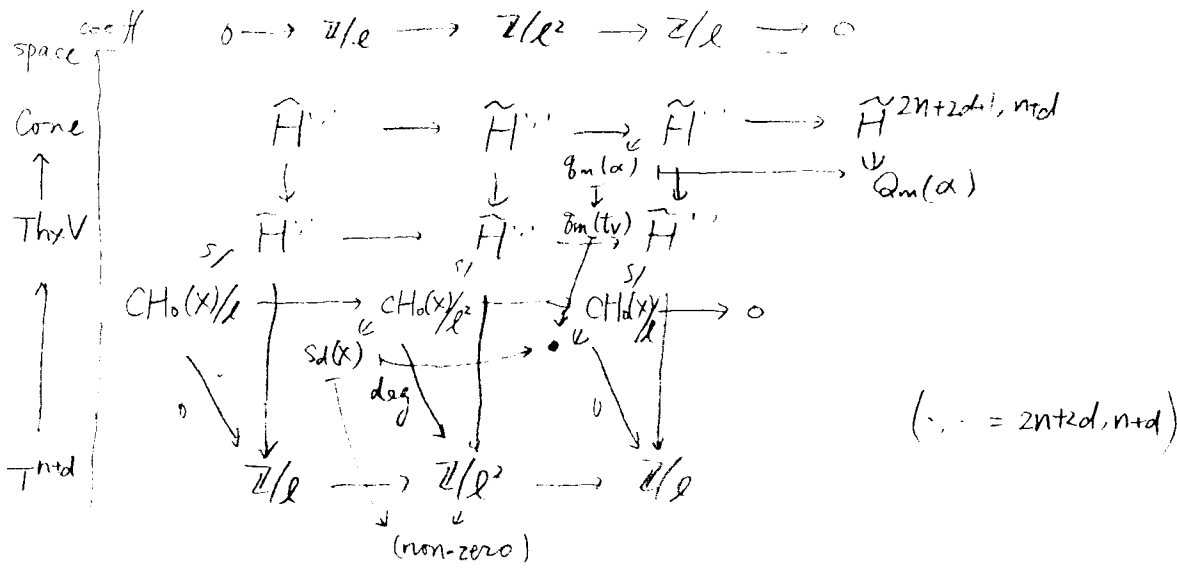 coeff 0 → ℤ/ℓ → ℤ/ℓ² → ℤ/ℓ → 0
space
Cone H̃^{·,·} → H̃^{·,·} → H̃^{·,·} → H̃^{2n+2d+1, n+d}
q_m(α) ↦ Q_m(α)
Th_X V H̃^{·,·} → H̃^{·,·} → H̃^{·,·}
q_m(t_V)
CH₀(X)/ℓ → CH₀(X)/ℓ² → CH₀(X)/ℓ → 0
s_d(X) ↦ •
deg
0 0
(·,· = 2n+2d, n+d)
T^{n+d} ℤ/ℓ → ℤ/ℓ² → ℤ/ℓ
(non-zero)